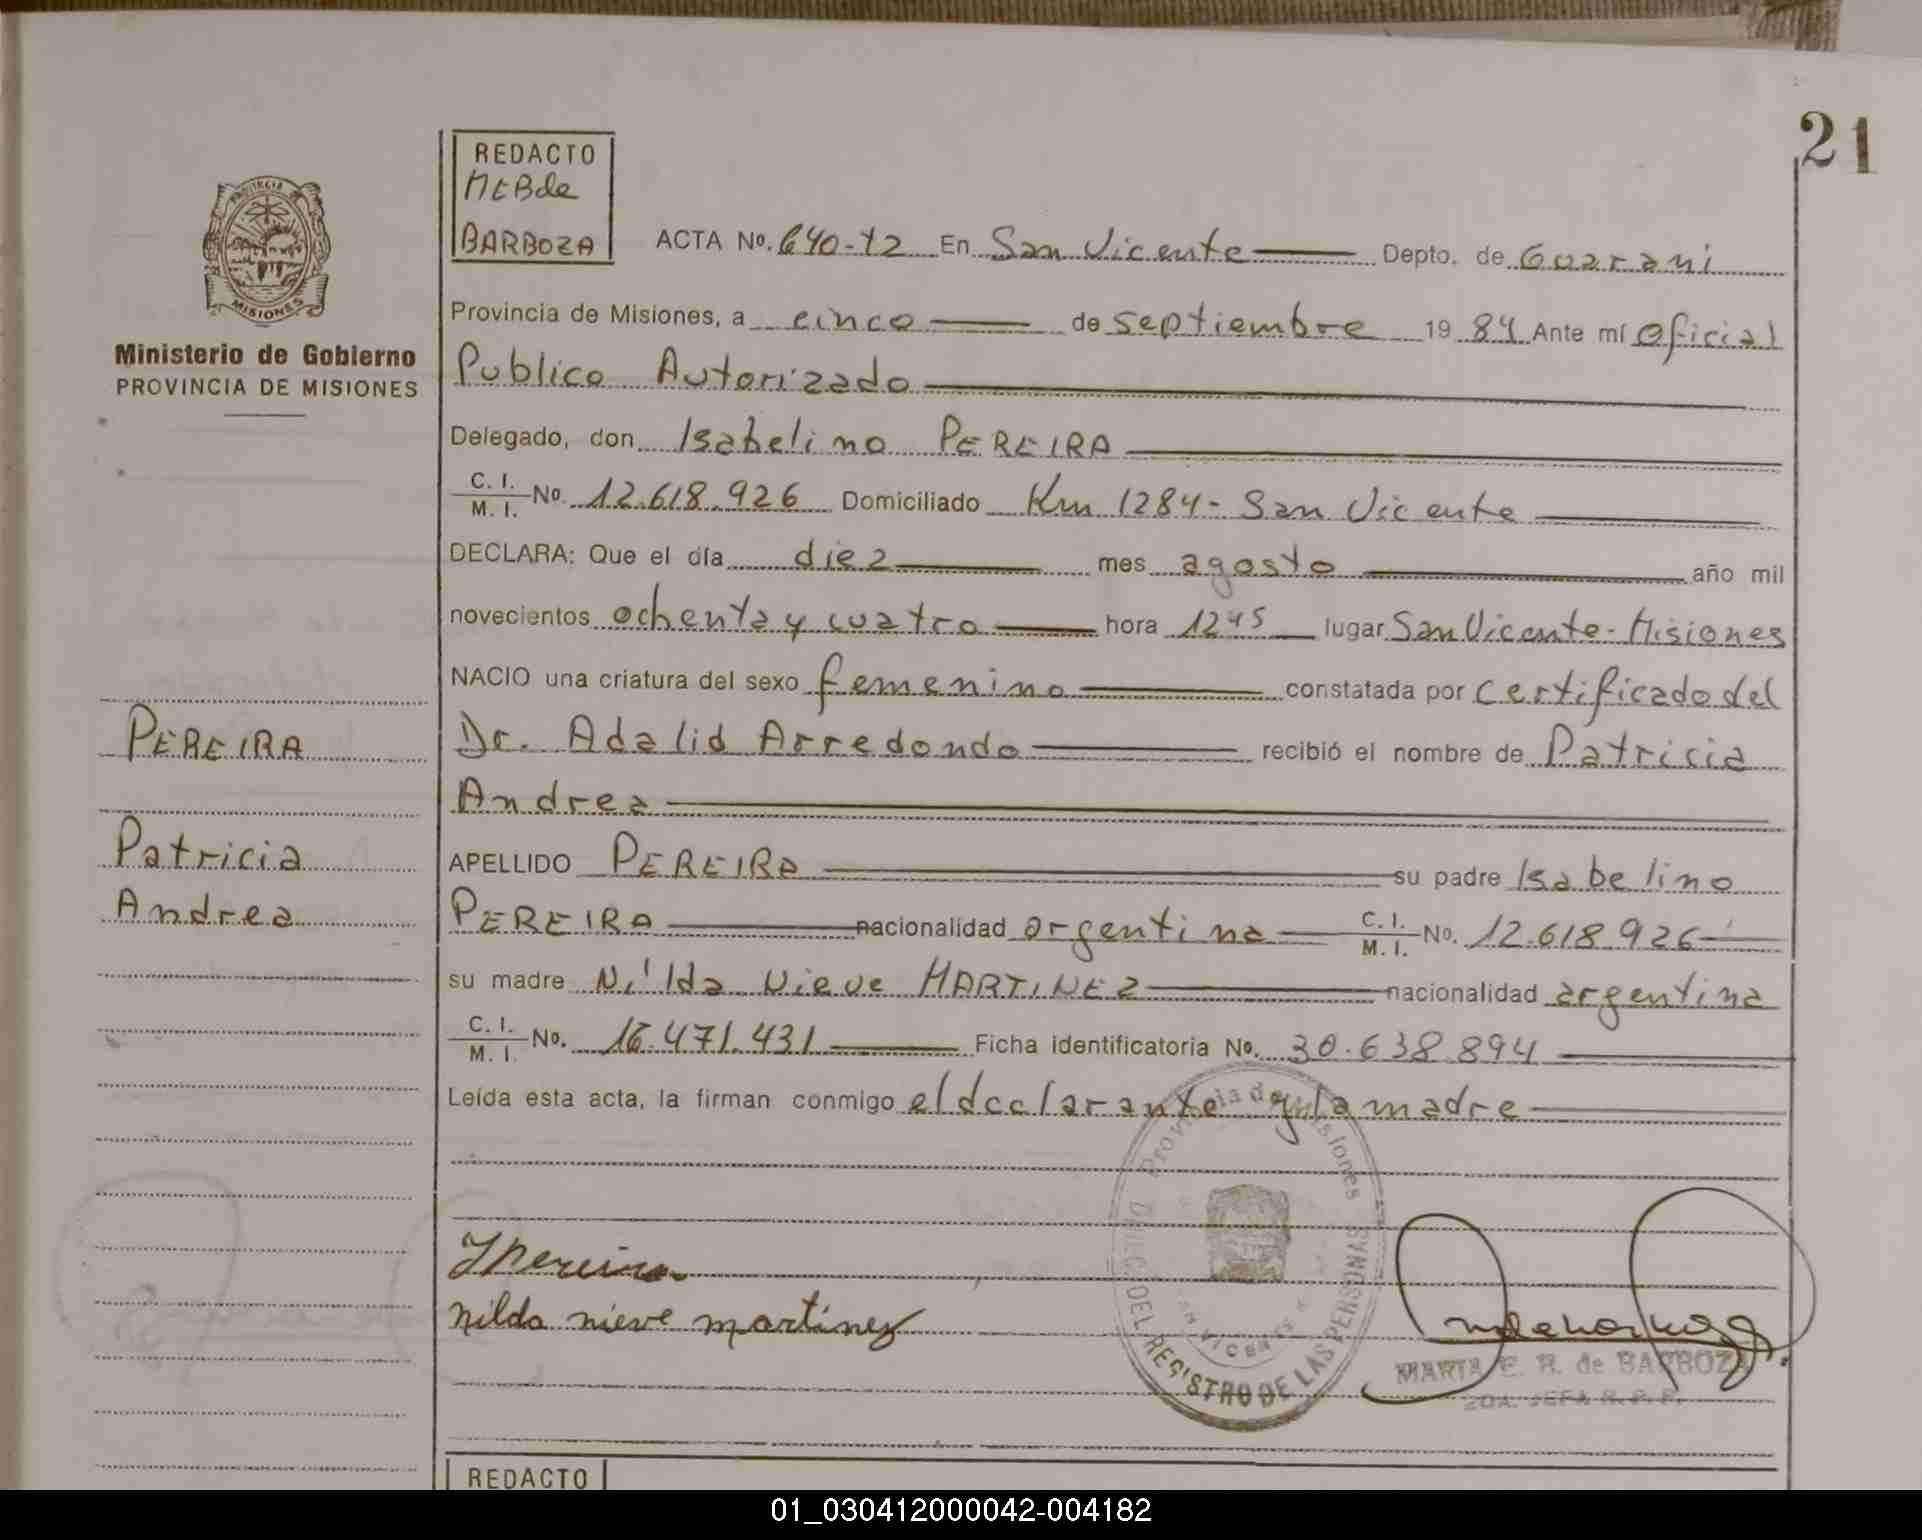 21
REDACTO
MEBde
BARBOZA
PROVINCIA
MISIONES
Ministerio de Gobierno
PROVINCIA DE MISIONES
ACTA No. 640-T2 En San Vicente Depto. de Guarani
Provincia de Misiones, a cinco de septiembre 19 84 Ante mí Oficial
Publico Autorizado
Delegado, don Isabelino PEREIRA
C. I. / M. I. No. 12.618.926 Domiciliado Km 1284 - San Vicente
DECLARA: Que el día diez mes agosto año mil
novecientos ochenta y cuatro hora 12 45 lugar San Vicente - Misiones
NACIO una criatura del sexo femenino constatada por certificado del
Dr. Adalid Arredondo recibió el nombre de Patricia
Andrea
APELLIDO PEREIRA su padre Isabelino
PEREIRA nacionalidad argentina C. I. / M. I. No. 12.618.926
su madre Nilda Nieve MARTINEZ nacionalidad argentina
C. I. / M. I. No. 16.471.431 Ficha identificatoria No. 30.638.894
Leída esta acta, la firman conmigo el declarante y la madre
PEREIRA
Patricia
Andrea
IPereira
nilda nieve martinez
Provincia de Misiones
DIREC. DEL REGISTRO DE LAS PERSONAS
SAN VICENTE
MARIA E. R. de BARBOZA
2DA. JEFA R. P. P.
REDACTO
01_030412000042-004182